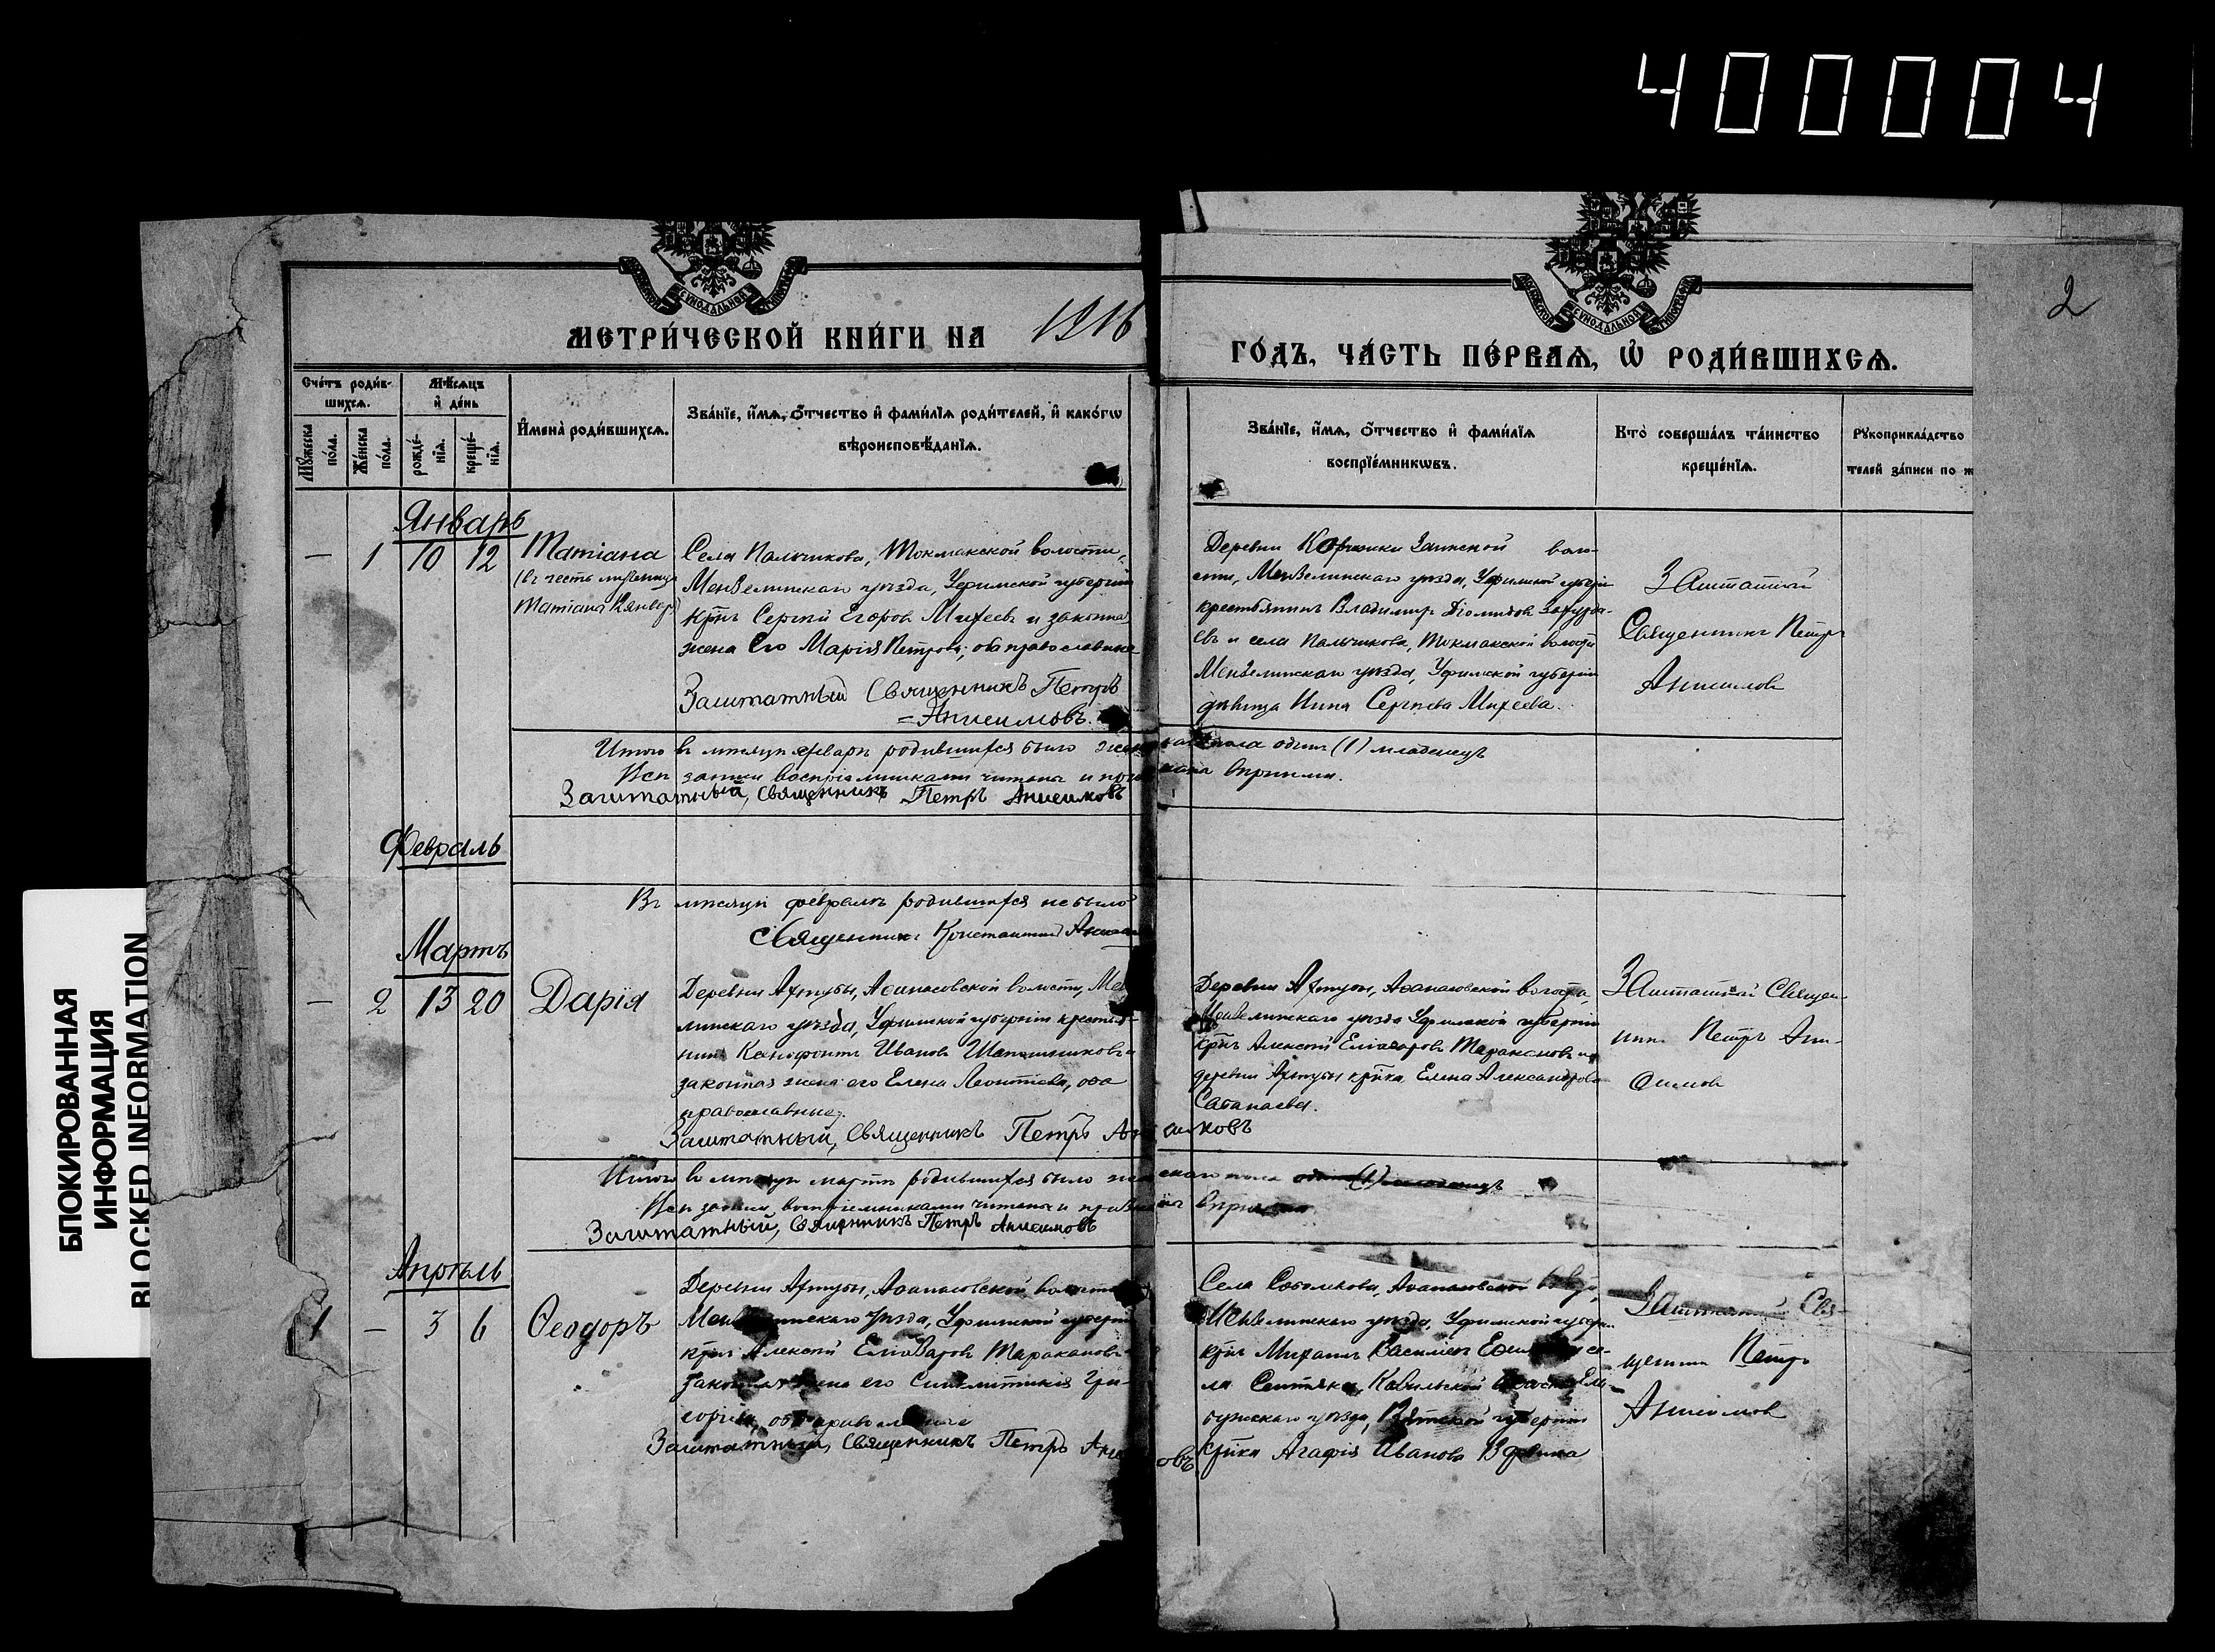 400004
2
МЕТРИ́ЧЕСКОЙ КНИ́ГИ НА 1916
ГО́ДЪ, ЧА́СТЬ ПЕ́РВАѦ, Ѡ҆ РОДИ́ВШИХСѦ.
Сче́тъ роди́в-
шихсѧ.
Мꙋ́жеска по́ла.
Же́нска по́ла.
Мѣ́сѧцъ и҆ де́нь
рожде́-
нїѧ.
креще́-
нїѧ.
И҆мена̀ роди́вшихсѧ.
Зва́нїе, и҆́мѧ, ѻ҆́тчество и҆ фами́лїѧ роди́телей, и҆ како́гѡ
вѣроисповѣ́данїѧ.
Зва́нїе, и҆́мѧ, ѻ҆́тчество и҆ фами́лїѧ
воспрїе́мникѡвъ.
Кто̀ соверша́лъ та́инство
креще́нїѧ.
Рꙋкоприкла́дство
телей за́писи по ж
Январь
— 1 10 12 Татіана
(въ честь мученицы
Татіана 12 январ)
Села Пальчикова, Токмакской волости,
Мензелинскаго уѣзда, Уфимской губерніи
крнъ Сергѣй Егоровъ Михеевъ и законная
жена его Марія Петрова; оба православные
Заштатный Священникъ Петръ
Анисимовъ.
Деревни Заинской воло-
сти, Мензелинскаго уѣзда, Уфимской губерніи
крестьянинъ Владимиръ Діомидов
евъ и села Пальчикова, Токмакской волости
Мензелинскаго уѣзда, Уфимской губерніи
дѣвица Нина Сергѣева Михеева.
Заштатный
Священникъ Петръ
Анисимовъ
Итого въ мѣсяцѣ январѣ родившихся было женскаго пола одинъ (1) младенецъ
Всѣ записи воспріемниками читаны и признаны вѣрными.
Заштатный, Священникъ Петръ Анисимовъ
Февраль
Въ мѣсяцѣ февралѣ родившихся не было
Священникъ Константинъ
Мартъ
— 2 13 20 Дарія
Деревни Ахтубы, Афанасовской волости, Мензе
линскаго уѣзда, Уфимской губерніи крестья-
нинъ Ксенофонтъ Ивановъ Шапошниковъ и
законная жена его Елена Леонтіева, оба
православные.
Заштатный, Священникъ Петръ Анисимовъ
Деревни Ахтубы, Афанасовской волости,
Мензелинскаго уѣзда Уфимской губерніи
крнъ Алексѣй Еліазаровъ Таракановъ и
деревни Ахтубы крнка Елена Александрова
Сабанаева.
Заштатный Священ-
никъ Петръ Ани-
симовъ
Итого въ мѣсяцѣ мартѣ родившихся было женскаго пола одинъ (1) младенецъ
Всѣ записи воспріемниками читаны и признаны вѣрными
Заштатный, Священникъ Петръ Анисимовъ
Апрѣль
1 — 3 6 Ѳеодоръ
Деревни Ахтубы, Афанасовской волости
Мензелинскаго уѣзда, Уфимской губерніи
крнъ Алексѣй Еліазаровъ Таракановъ
законная жена его Синклитикія Гри-
горіева, оба православные
Заштатный, Священникъ Петръ Анисимовъ
Села Соболекова, Афанасовской волости,
Мензелинскаго уѣзда, Уфимской губерніи
крнъ Михаилъ Василіевъ се-
ла волости Ела-
бужскаго уѣзда, Вятской губерніи
крнка Агафія Иванова Вдовина
Заштатный Свя-
щенникъ Петръ
Анисимовъ
БЛОКИРОВАННАЯ
ИНФОРМАЦИЯ
BLOCKED INFORMATION